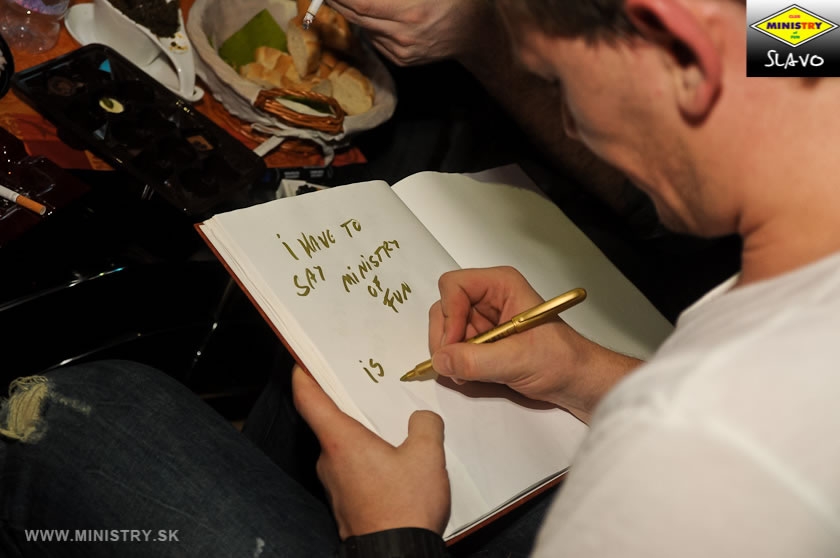 CLUB
MINISTRY
of
FUN
SLAVO
i HAVE TO
SAY MINISTRY
OF
FUN
is
WWW.MINISTRY.SK